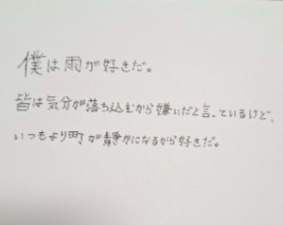 僕は雨が好きだ。
皆は気分が落ち込むから嫌いだと言っているけど、
いつもより町が静かになるから好きだ。